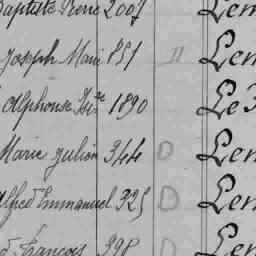 Baptiste René 2007 Lem
Joseph Marie 851 11 Len
Alphonse 1890 Le
Marie Julien 344 D Len
Alfred Emmanuel 325 D Len
François 998 D Len